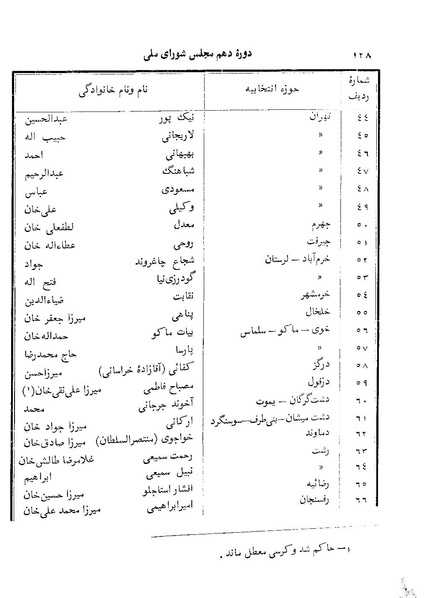 ۱۲۸ دورهٔ دهم مجلس شورای ملی
شمارهٔ ردیف حوزه انتخابیه نام ونام خانوادگی
٤٤ تهران نیک پور عبدالحسین
٤٥ « لاریجانی حبیب اله
٤٦ « بهبهانی احمد
٤٧ « شباهنگ عبدالرحیم
٤٨ « مسعودی عباس
٤٩ « وکیلی علی‌خان
٥٠ جهرم معدل لطفعلی خان
٥١ جیرفت روحی عطاءاله خان
٥٢ خرم‌آباد – لرستان شجاع چاغروند جواد
٥٣ « گودرزی‌نیا فتح اله
٥٤ خرمشهر نقابت ضیاءالدین
٥٥ خلخال پناهی میرزا جعفر خان
٥٦ خوی – ماکو – سلماس بیات ماکو حمداله‌خان
٥٧ « پارسا حاج محمدرضا
٥٨ درگز کفائی (آقازادهٔ خراسانی) میرزاحسن
٥٩ دزفول مصباح فاطمی میرزا علی‌نقی‌خان(۱)
٦٠ دشت‌گرگان – یموت آخوند جرجانی محمد
٦١ دشت میشان – بنی‌طرف – سوسنگرد ارکانی میرزا جواد خان
٦٢ دماوند خواجوی (منتصرالسلطان) میرزا صادق‌خان
٦٣ رشت رحمت سمیعی غلامرضا طالش‌خان
٦٤ « نبیل سمیعی ابراهیم
٦٥ رضائیه افشار استاجلو میرزا حسین‌خان
٦٦ رفسنجان امیرابراهیمی میرزا محمد علی‌خان
۱– حاکم شد وکرسی معطل ماند .